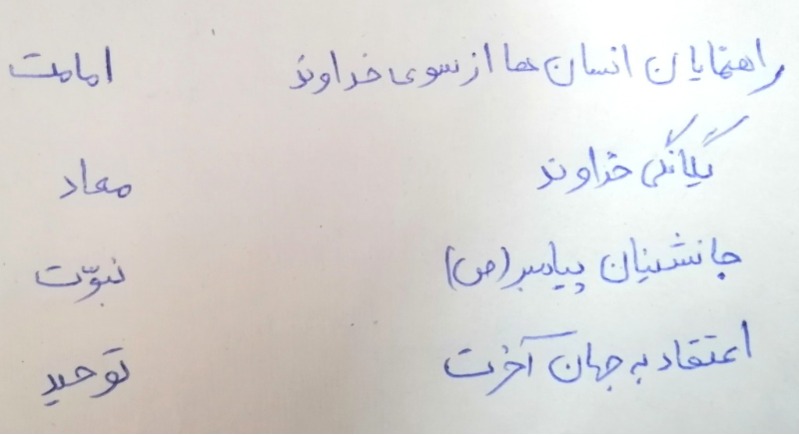 راهنمایان انسان ها از سوی خداوند امامت
یگانگی خداوند معاد
جانشینان پیامبر (ص) نبوّت
اعتقاد به جهان آخرت توحید